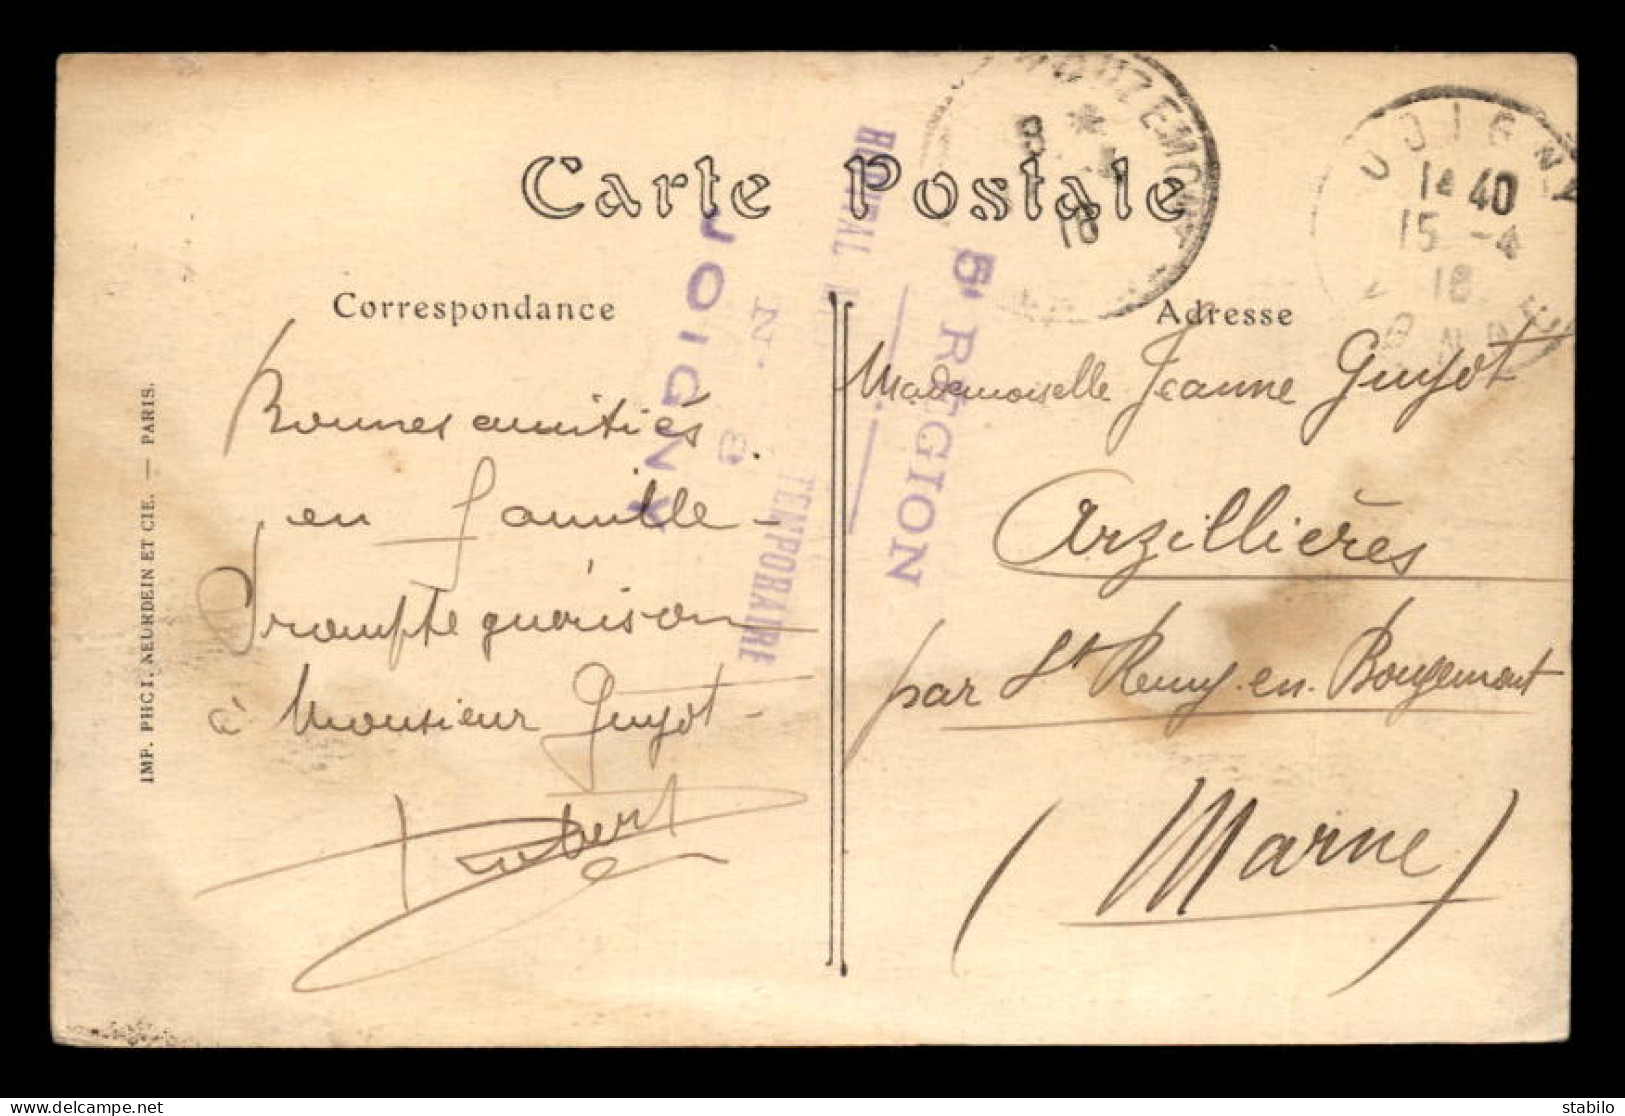 Carte Postale
Correspondance
Adresse
Bonnes amitiés
en famille -
Prompte guérison
à Monsieur Guyot -
Mademoiselle Jeanne Guyot
Arzillières
par St Remy-en-Bouzemont
(Marne)
IMP. PHOT. NEURDEIN ET CIE. — PARIS.
5e RÉGION
HOPITAL
TEMPORAIRE
N. 8
JOIGNY
8 * -4
18
JOIGNY
14 40
15 -4
18
YONNE
stabilo